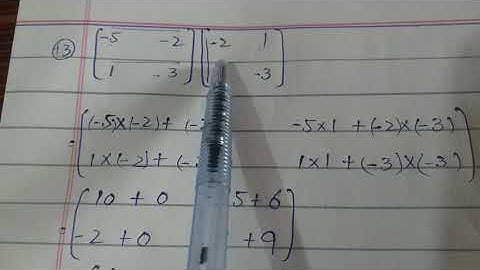 (13) [-5 -2 1 -3] [-2 1 -3]
= [(-5)×(-2)+(- -5×1 + (-2)×(-3)
1×(-2)+(- 1×1 + (-3)×(-3)]
= [10 + 0 5+6
-2 + 0 +9]